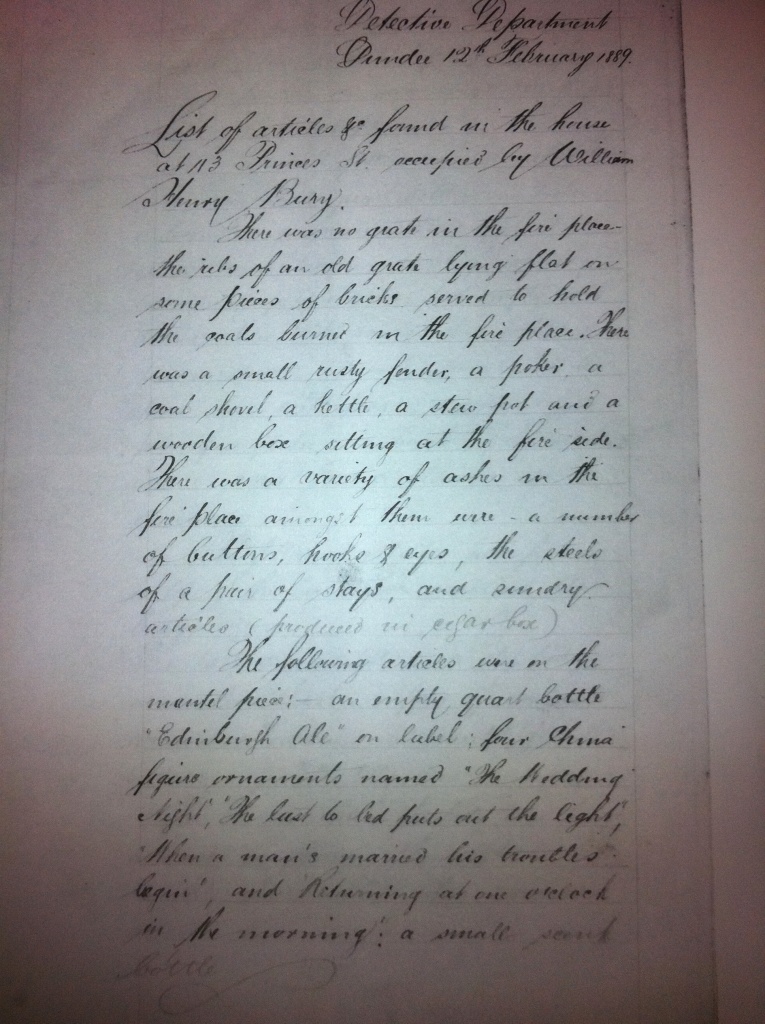 Detective Department
Dundee 12th February 1889.
List of articles &c found in the house
at 113 Princes St. occupied by William
Henry Bury.
There was no grate in the fire place-
the ribs of an old grate lying flat on
some pieces of bricks served to hold
the coals burned in the fire place. There
was a small rusty fender, a poker, a
coal shovel, a kettle, a stew pot and a
wooden box sitting at the fire side.
There was a variety of ashes in the
fire place amongst them were - a number
of buttons, hooks & eyes, the steels
of a pair of stays, and sundry
articles (produced in cigar box)
The following articles were on the
mantel piece:- an empty quart bottle
"Edinburgh Ale" on label; four China
figure ornaments named "The Wedding
Night", "The last to bed puts out the light",
"When a man's married his troubles
begin", and "Returning at one o'clock
in the morning"; a small scent
bottle